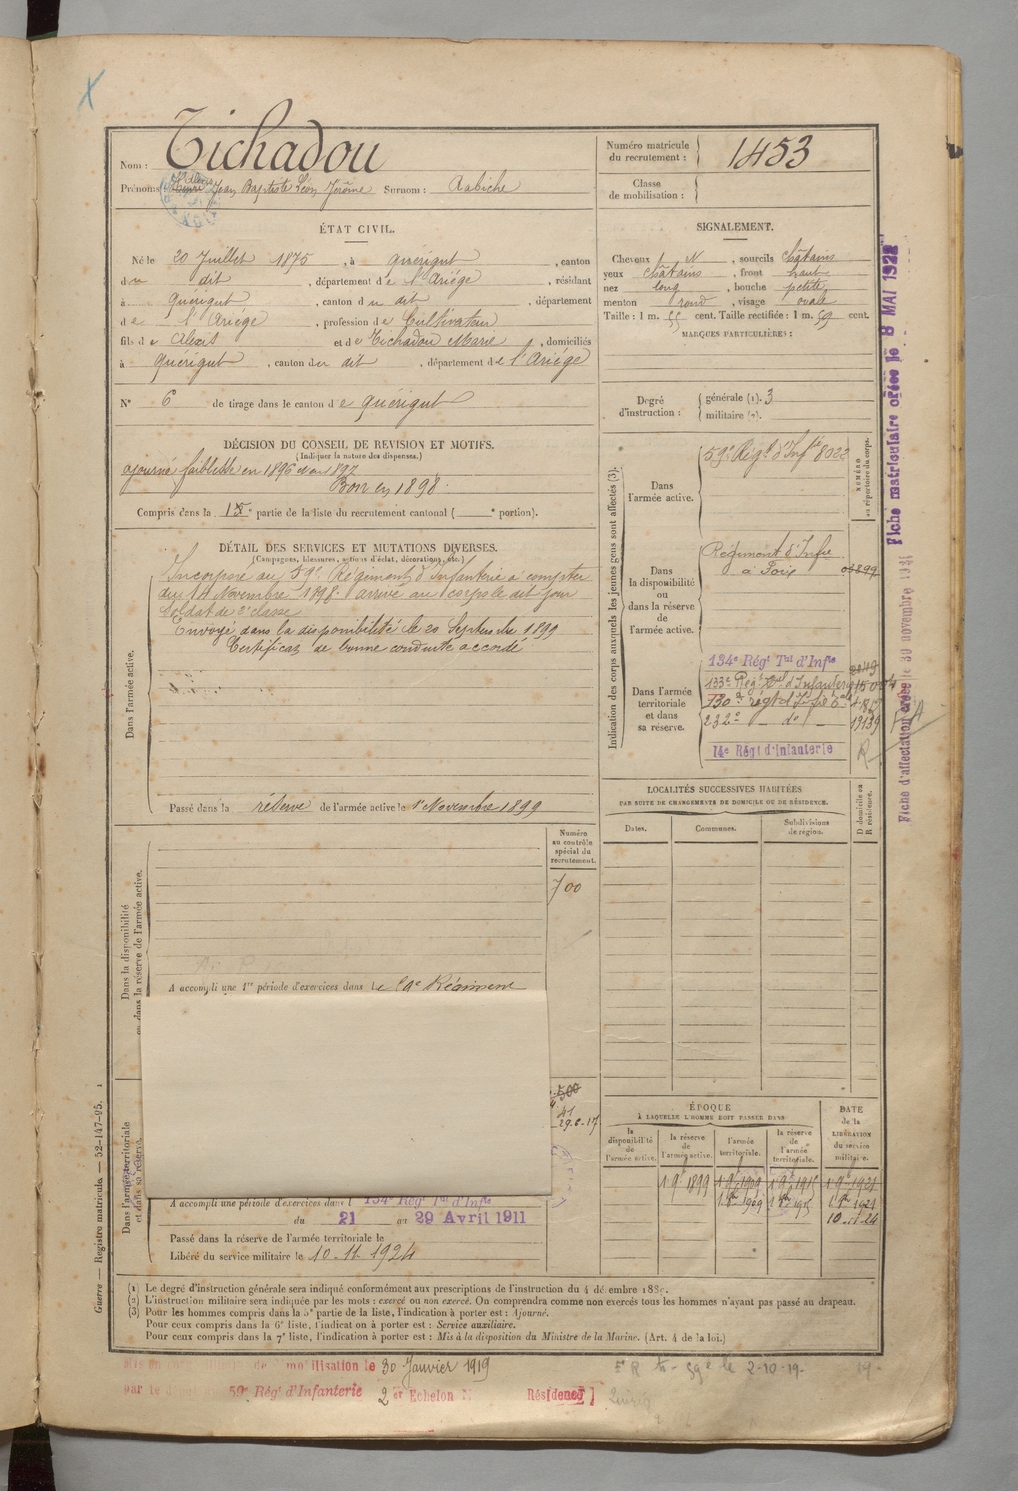 Nom : Tichadou
Prénoms : Henri Alexis Jean Baptiste Léon Jérôme Surnom : Rabiche
Numéro matricule du recrutement : 1453
Classe de mobilisation :
ÉTAT CIVIL.
Né le 20 Juillet 1875, à Quérigut, canton
du dit, département de l'Ariége, résidant
à Quérigut, canton du dit, département
de l'Ariége, profession de Cultivateur
fils de Alexis et de Tichadou Marie, domiciliés
à Quérigut, canton du dit, département de l'Ariége
N° 6 de tirage dans le canton de Quérigut
SIGNALEMENT.
Cheveux N, sourcils châtains
yeux châtains, front haut
nez long, bouche petite
menton rond, visage ovale
Taille : 1 m. 55 cent. Taille rectifiée : 1 m. 59 cent.
MARQUES PARTICULIÈRES :
Degré d'instruction : générale (1). 3
militaire (2).
DÉCISION DU CONSEIL DE REVISION ET MOTIFS.
(Indiquer la nature des dispenses.)
ajourné faiblesse en 1896 et en 1897
Bon en 1898
Compris dans la 1re partie de la liste du recrutement cantonal ( portion).
DÉTAIL DES SERVICES ET MUTATIONS DIVERSES.
(Campagnes, blessures, actions d'éclat, décorations, etc.)
Dans l'armée active.
Incorporé au 59e Régiment d'Infanterie à compter
du 14 Novembre 1898. arrivé au corps le dit jour
Soldat de 2e classe
Envoyé dans la disponibilité le 20 Septembre 1899
Certificat de bonne conduite accordé
Passé dans la réserve de l'armée active le 1er Novembre 1899
Indication des corps auxquels les jeunes gens sont affectés (3).
NUMÉRO au répertoire du corps.
Dans l'armée active.
59e Régt d'Infrie 8022
Dans la disponibilité ou dans la réserve de l'armée active.
Régiment d'Infie
à Foix 03899
Dans l'armée territoriale et dans sa réserve.
134e Régt Tal d'Infie
133e Régt Tal d'Infanterie
130e régt d'Infie
232e do 19139
14e Régt d'Infanterie
Fiche matriculaire créée le 8 MAI 1922
Fiche d'affectation créée le 30 novembre 1921
LOCALITÉS SUCCESSIVES HABITÉES
PAR SUITE DE CHANGEMENTS DE DOMICILE OU DE RÉSIDENCE.
Dates. Communes. Subdivisions de région. D domicile ou R résidence.
Numéro au contrôle spécial du recrutement.
700
Dans la disponibilité ou dans la réserve de l'armée active.
A accompli une 1re période d'exercices dans le 59e Régiment
500
41
29.6-17
Dans l'armée territoriale et dans sa réserve.
A accompli une période d'exercices dans l 134e Régt Tal d'Infie
du 21 au 29 Avril 1911
Passé dans la réserve de l'armée territoriale le
Libéré du service militaire le 10-11-1924
ÉPOQUE
À LAQUELLE L'HOMME DOIT PASSER DANS
DATE de la LIBÉRATION du service militaire.
la disponibilité de l'armée active. la réserve de l'armée active. l'armée territoriale. la réserve de l'armée territoriale.
1 9e 1899 1 9e 1909 1 9e 1915 1 9e 1921
1 8bre 1909 1 8bre 1915 1 9bre 1921
10-11-24
(1) Le degré d'instruction générale sera indiqué conformément aux prescriptions de l'instruction du 4 décembre 1889.
(2) L'instruction militaire sera indiquée par les mots : exercé ou non exercé. On comprendra comme non exercés tous les hommes n'ayant pas passé au drapeau.
(3) Pour les hommes compris dans la 5e partie de la liste, l'indication à porter est : Ajourné.
Pour ceux compris dans la 6e liste, l'indication à porter est : Service auxiliaire.
Pour ceux compris dans la 7e liste, l'indication à porter est : Mis à la disposition du Ministre de la Marine. (Art. 4 de la loi.)
Guerre — Registre matricule. — 52-147-95.
Mis en congé de démobilisation le 30 Janvier 1919
par le dépôt du 59e Régt d'Infanterie 2er Echelon
le 2-10-19